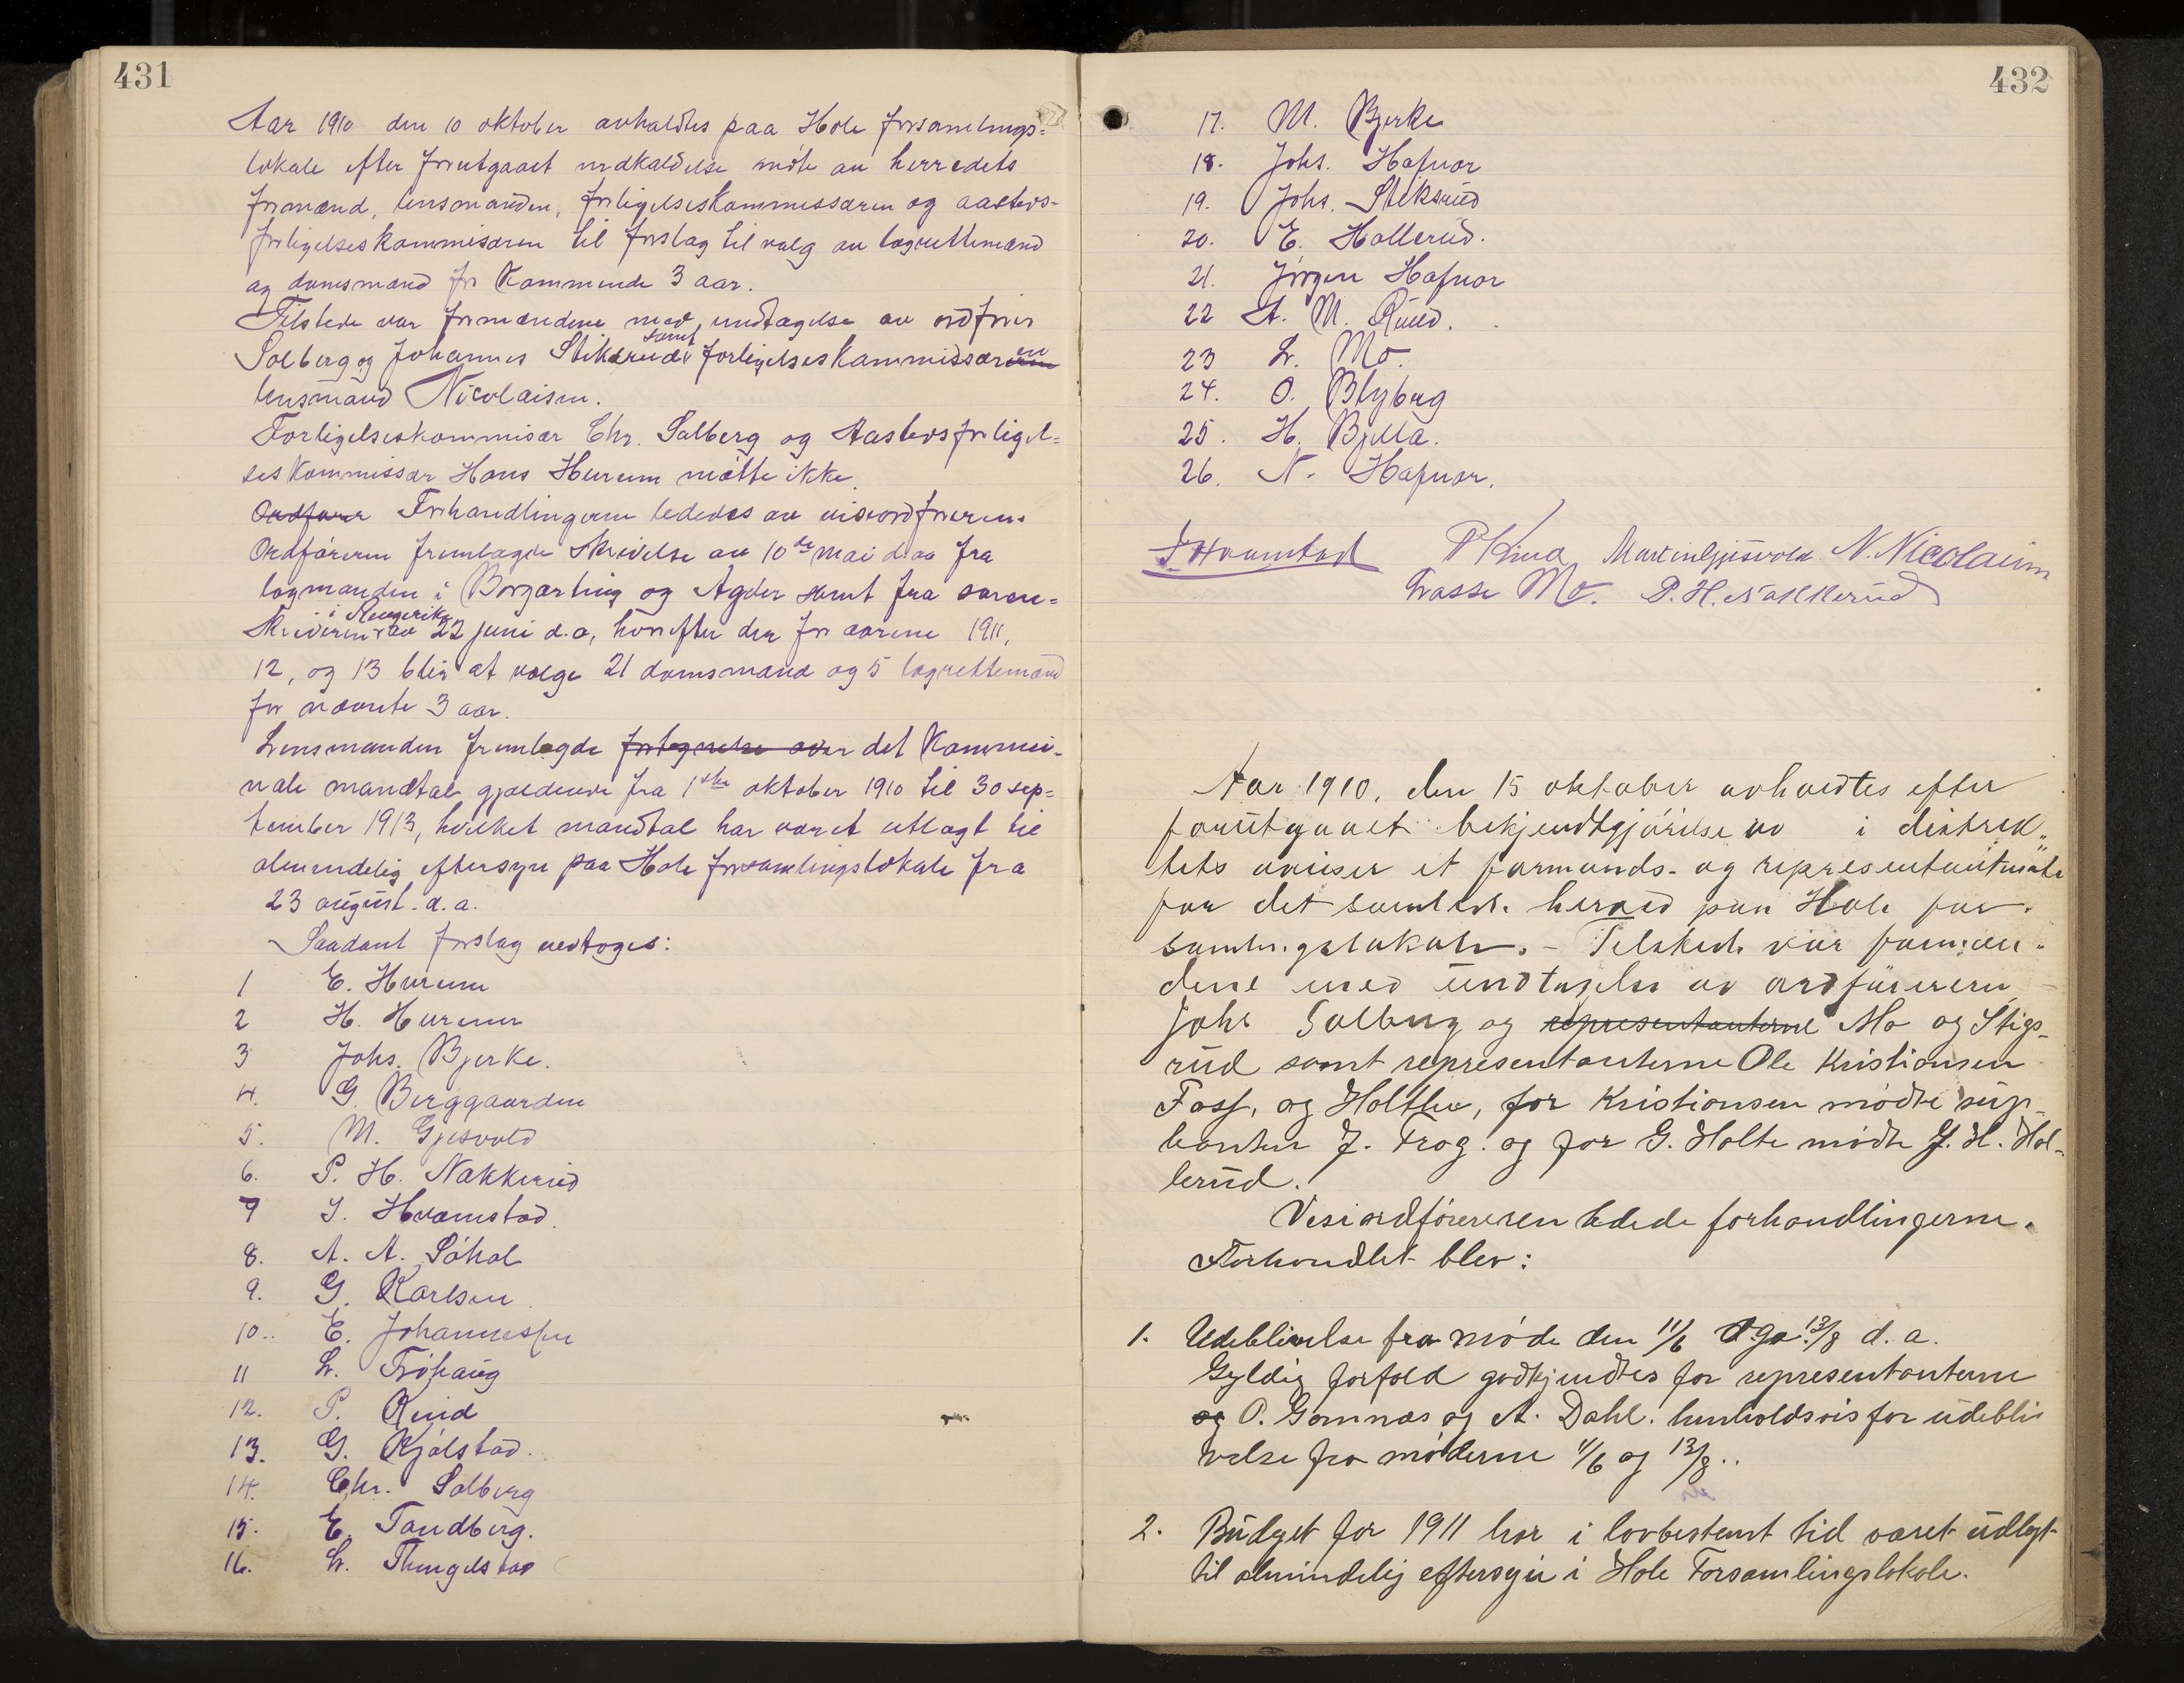 431
Aar 1910 den 10 oktober avholdtes paa Hole forsamlings-
lokale efter forutgaaet indkaldelse møte av herredets
formænd, lensmanden, forligelseskommissæren og aasteds-
forligelseskommisæren til forslag til valg av lagrettemænd
og domsmænd for kommende 3 aar.
Tilstede var formændene med undtagelse av ordfører
Solberg og Johannes Stiksrud samt forligelseskommissæren
lensmand Nicolaisen.
Forligelseskommisær Chr. Solberg og Aastedsforligel-
seskommissær Hans Hurum møtte ikke.
Ordfører Forhandlingerne lededes av viseordføreren.
Ordføreren fremlagde skrivelse av 10de mai d.aa fra
lagmanden i Borgarting og Agder samt fra soren-
skriveren i Ringerike av 22 juni d.a, hvorefter der for aarene 1911,
12, og 13 blir at vælge 21 domsmænd og 5 lagrettemænd
for nævnte 3 aar.
Lensmanden fremlagde fortegnelse over det kommu-
nale mandtal gjældende fra 1ste oktober 1910 til 30 sep-
tember 1913, hvilket mandtal har været utlagt til
almindelig eftersyn paa Hole forsamlingslokale fra
23 august d.a.
Saadant forslag vedtoges:
1 E. Hurum
2 H. Hurum
3 Johs. Bjerke.
4. G. Berggaarden
5. M. Gjesvold
6. P. H. Nakkerud
7 I. Hvamstad.
8. A. A. Søhol
9. G. Karlsen
10.. E. Johannessen
11 L. Frøhaug
12. P. Ruud
13. G. Kjølstad.
14. Chr. Solberg
15. E. Tandberg.
16. L. Thingelstad
432
17. M. Bjerke
18. Johs. Hafnor
19. Johs. Stiksrud
20. E. Hollerud.
21. Jørgen Hafnor
22 A. M. Ruud.
23 L. Mo.
24. O. Blyberg
25. H. Bjella.
26. N. Hafnor.
I. Hvamstad Martin Gjesvold N. Nicolaisen
Lasse Mo. P. H. Nakkerud
Aar 1910, den 15 oktober avholdtes efter
forutgaaet bekjendtgjørelse av i distrik-
tets aviser et formands- og representantmøte
for det samlede herred paa Hole for-
samlingslokale. - Tilstede var formæn-
dene med undtagelse av ordføreren
Johs Solberg og representanterne Mo og Stigs-
rud samt representanterne Ole Kristiansen
Foss, og Holthe, for Kristiansen mødte sup-
leanten J. Frog. og for G. Holte mødte J. H. Hol-
lerud.
Visiordføreren ledede forhandlingerne.
Forhandlet blev:
1. Udeblivelse fra møde den 11/6 og 13/8 d. a.
Gyldig forfald godkjendtes for representanterne
og O. Gomnæs og A. Dahl. henholdsvis for udebli
velse fra møderne 11/6 og 13/8..
2. Budget for 1911 har i lovbestemt tid været udlagt
til almindelig eftersyn i Hole Forsamlingslokale.